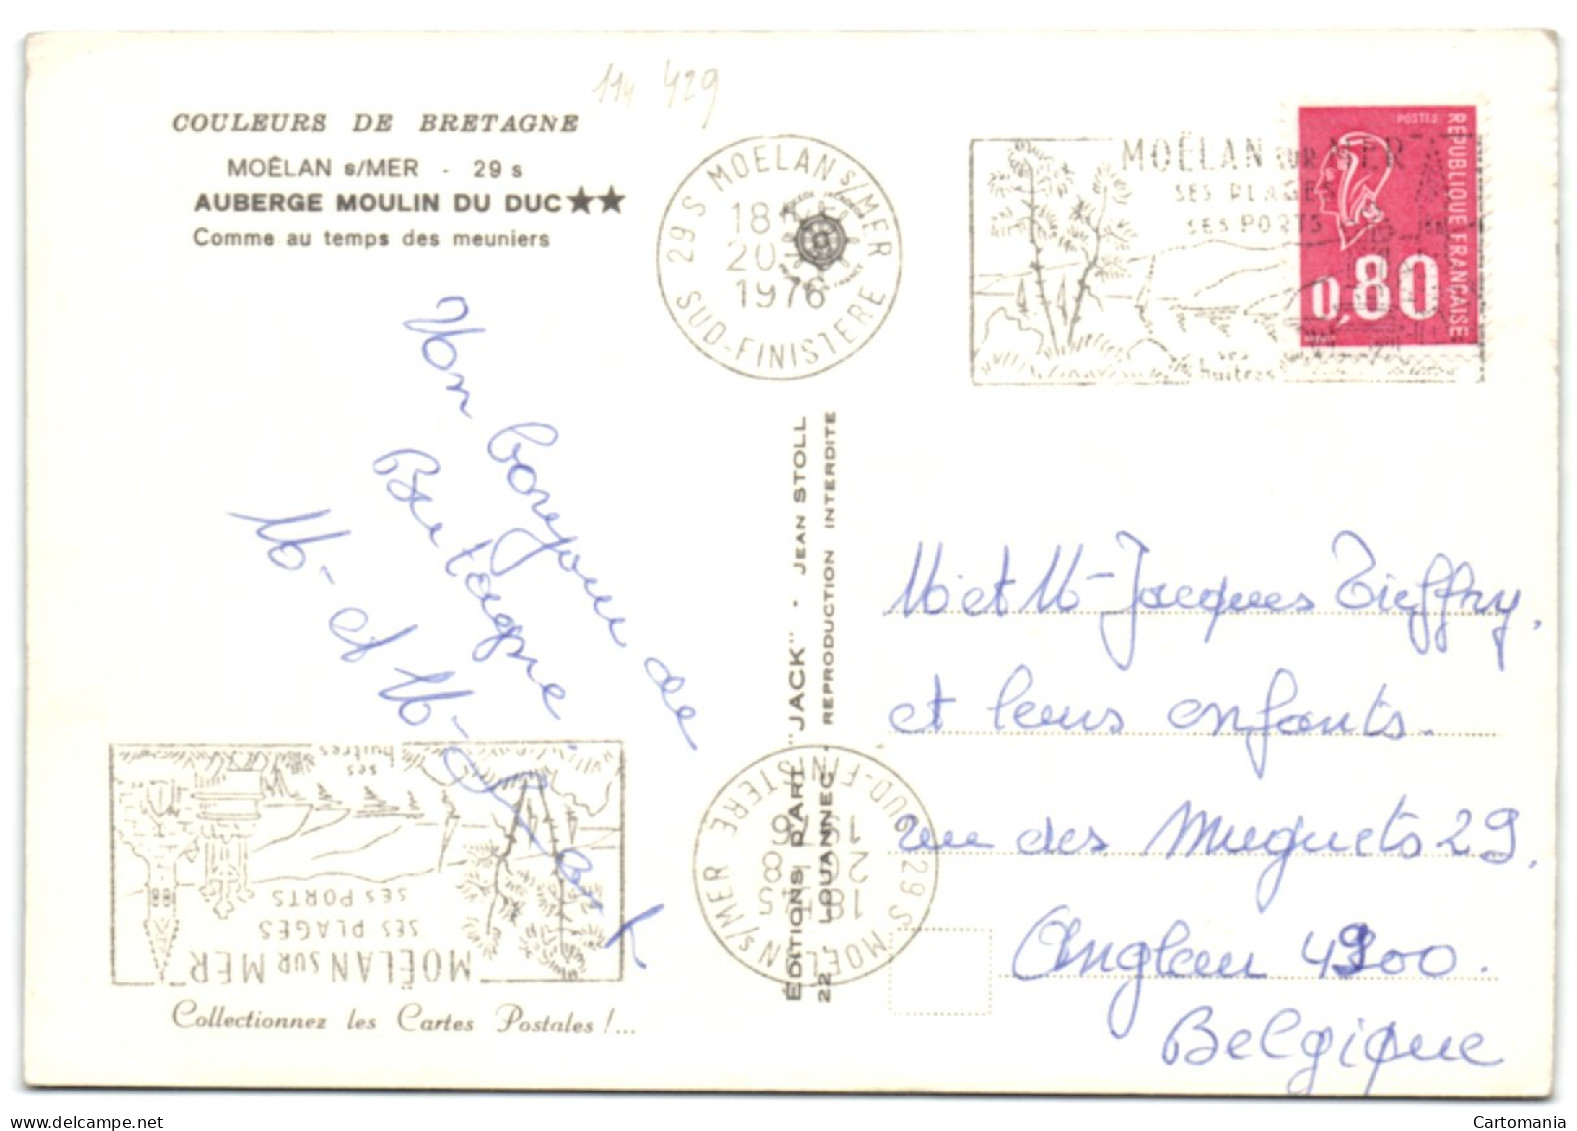 114 429
COULEURS DE BRETAGNE
MOËLAN s/MER - 29 s
AUBERGE MOULIN DU DUC ★★
Comme au temps des meuniers
29 S MOELAN s/MER
18
20
1976
SUD-FINISTERE
MOËLAN SUR MER
SES PLAGES
SES PORTS
ses
huitres
POSTES
REPUBLIQUE FRANÇAISE
0,80
Mon bonjour de
Bretagne
M- et M-
EDITIONS D'ART "JACK" - JEAN STOLL
22 - LOUANNEC - REPRODUCTION INTERDITE
M- et M- Jacques Tieffry,
et leurs enfants.
rue des Muguets 29.
Angleur 4900.
Belgique
MOËLAN SUR MER
SES PLAGES
SES PORTS
ses
huitres
29 S MOËLAN s/MER
18H45
SUD-FINISTERE
Collectionnez les Cartes Postales !...
Cartomania